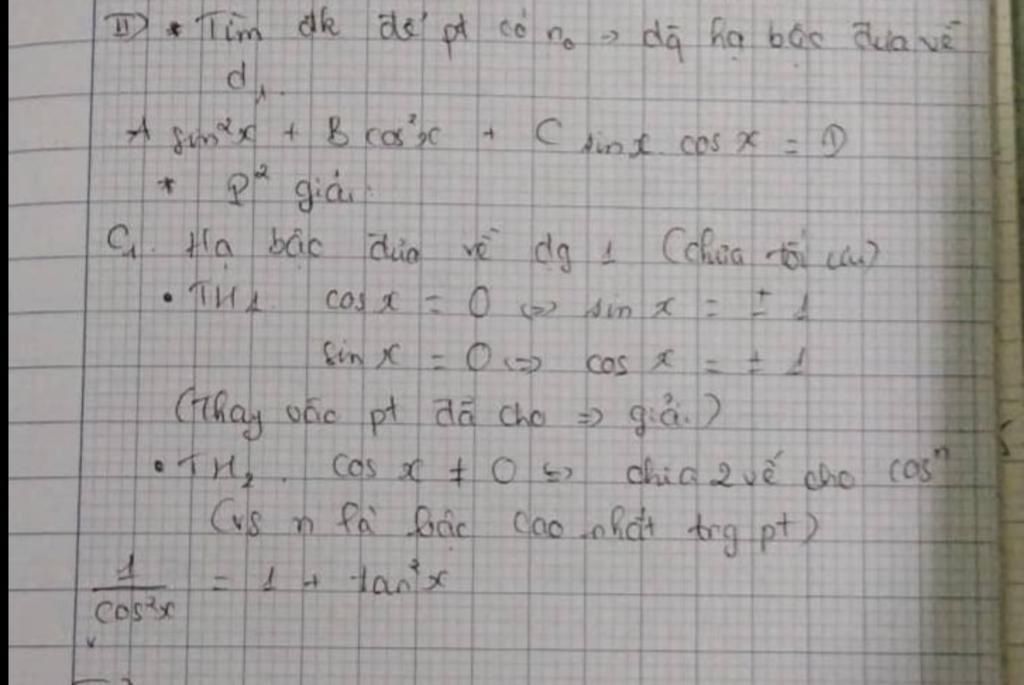 II) * Tìm đk để pt có n₀ → đã hạ bậc đưa về
d₁.
A sin²x + B cos²x + C sinx cos x = D
* P² giải.
C₁. Hạ bậc đưa về dg 1 (chưa tối ưu)
• TH₁. cos x = 0 <=> sin x = ± 1
sin x = 0 <=> cos x = ± 1
(Thay vào pt đã cho => giải.)
• TH₂. cos x ≠ 0 <=> chia 2 vế cho cosⁿ
(vs n là bậc cao nhất trg pt)
1/cos²x = 1 + tan²x